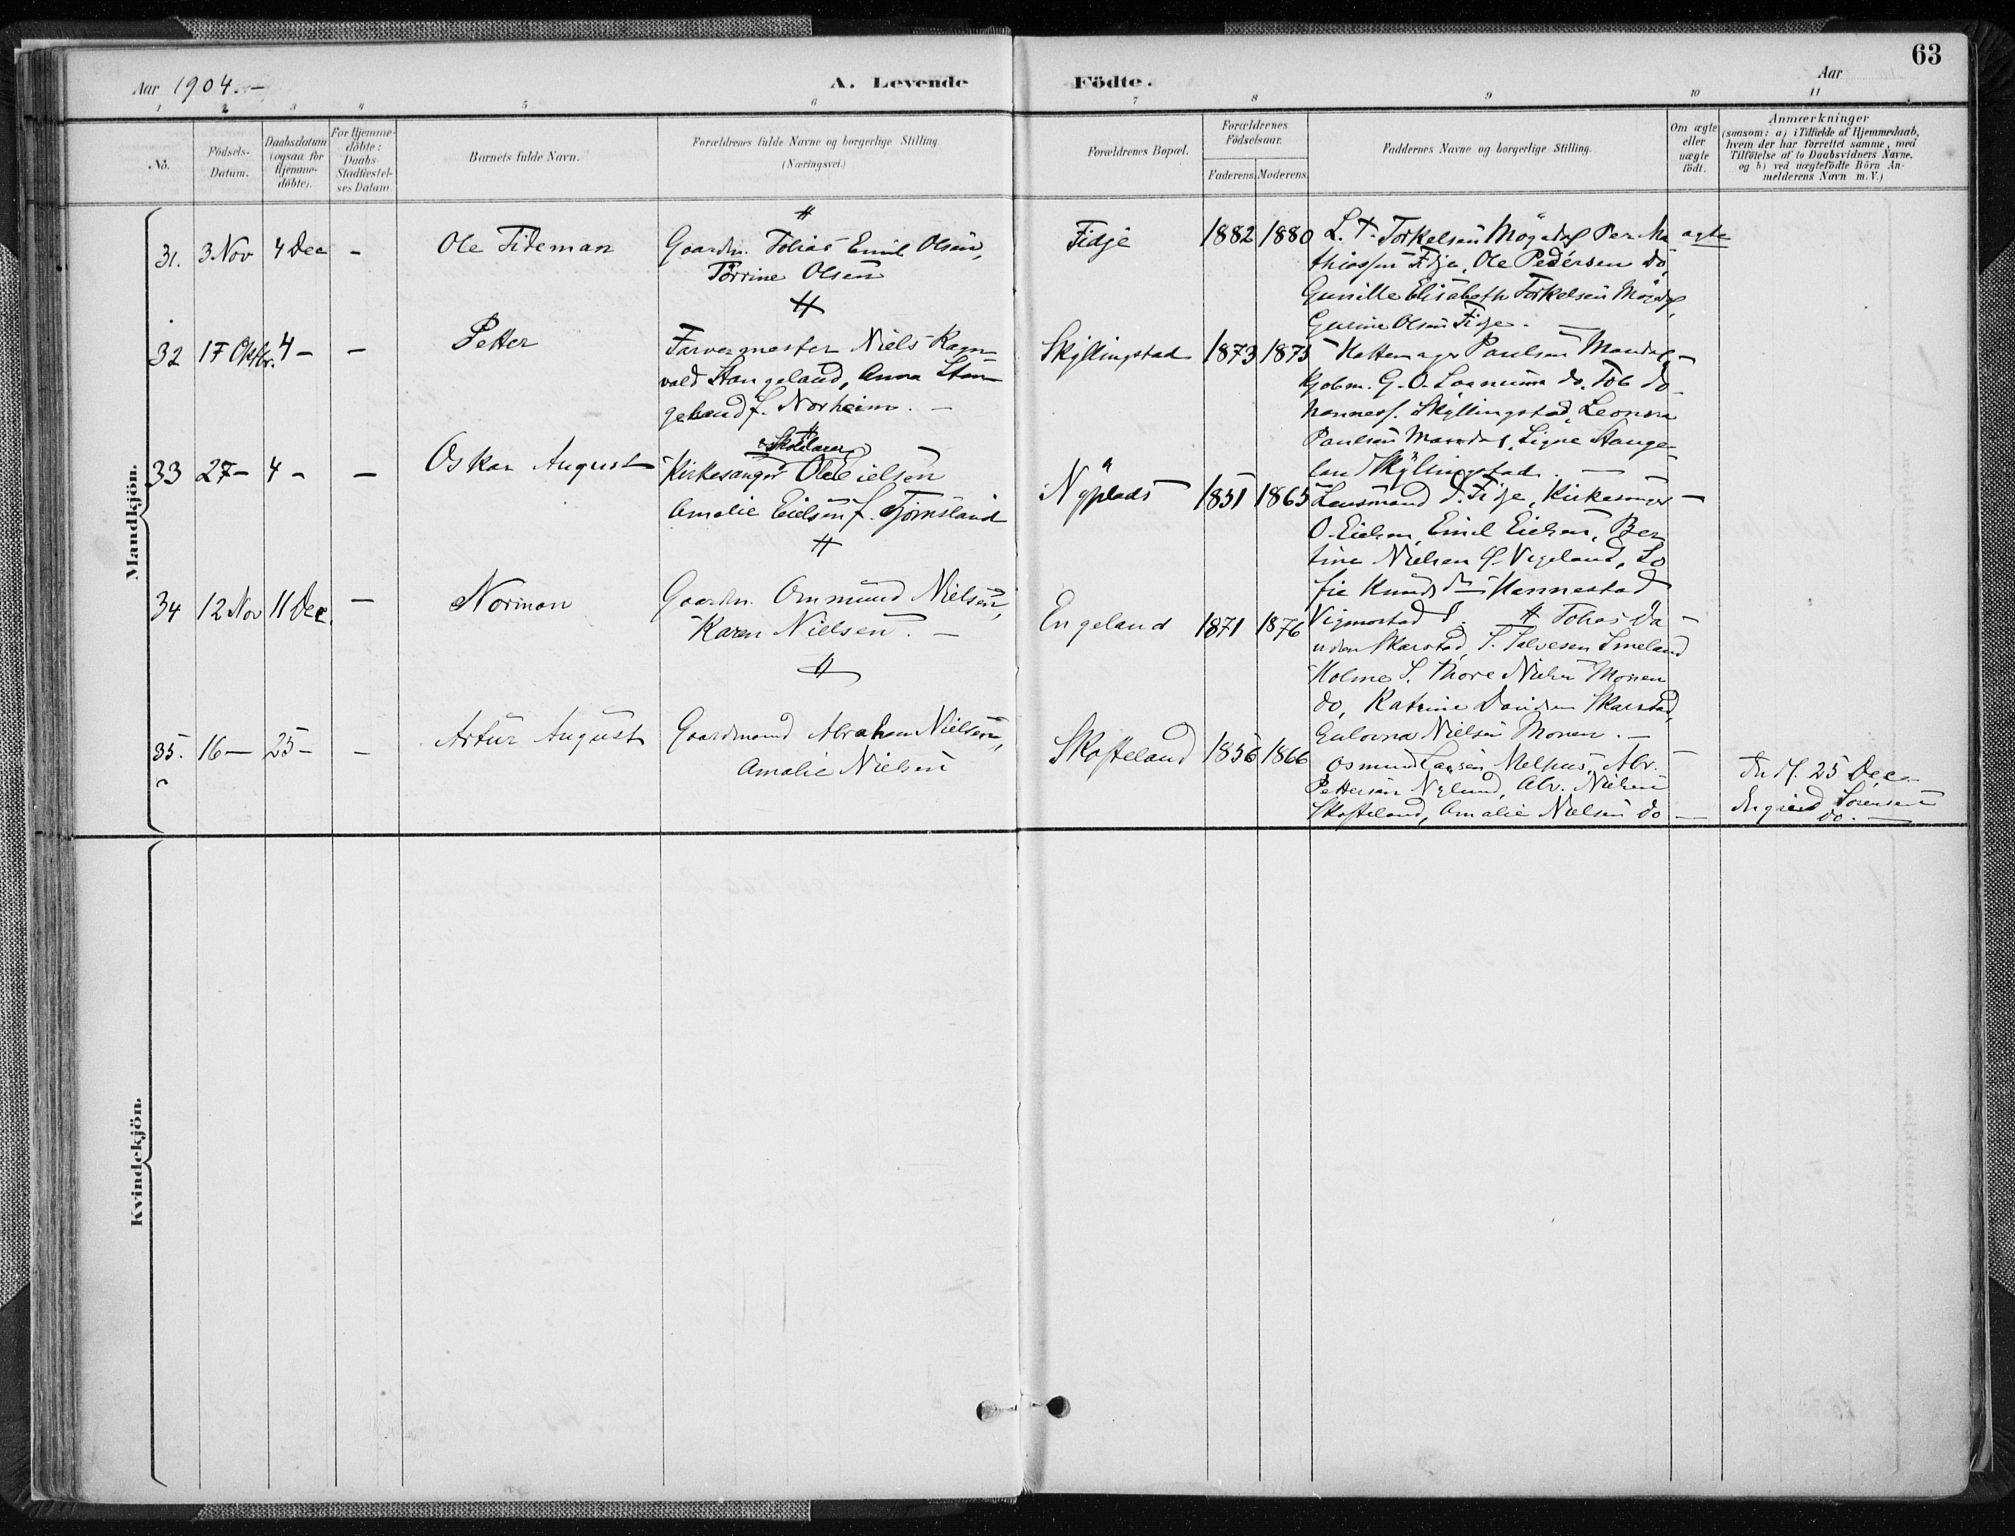 63
Aar 1904. –
A. Levende
Födte.
Aar
1 2 3 4 5 6 7 8 9 10 11
No.
Födsels-
Datum.
Daabsdatum
(ogsaa for
Hjemme-
döbte).
For Hjemme-
döbte:
Daabs-
Stadfæstel-
ses Datum.
Barnets fulde Navn.
Forældrenes fulde Navne og borgerlige Stilling
(Næringsvei.)
Forældrenes Bopæl.
Forældrenes
Födselsaar.
Faderens. Moderens.
Faddernes Navne og borgerlige Stilling.
Om ægte
eller
uægte
födt.
Anmærkninger
(saasom: a) i Tilfælde af Hjemmedaab,
hvem der har forrettet samme, med
Tilföielse af to Daabsvidners Navne.
og b) ved uægtefödte Börn An-
melderens Navn m. V.)
Mandkjön.
31. 3 Nov 4 Dec –
Ole Tideman
Gaardm. Tobias Emil Olsen,
Törrine Olsen
Fidje
1882 1880
L. T. Torkelsen Möydal Per Ma
thiassen Fidje, Ole Pedersen do,
Gunille Elisabeth Torkelsen
Gurine Olsen Fidje. –
ægte
32 17 4 – –
Petter
Farvermester Niels Ragn
vald Stangeland, Anna Stan
geland f. Norheim. –
Skyllingstad
1873 1873
Hattemager Paulsen Mandal
Kjobm. G. O. do. Tob Jo
hannes. Skyllingstad, Leonora
Paulsen Mandal, Signe Stange-
land Skyllingstad. –
–
33 27 – 4 – –
Oskar August
Kirkesanger Ole Eielsen
Amalie Eielsen f. Tjömsland
Nyplads
1851 1865
Lensmand Fidje, Kirkesanger
O. Eielsen, Emil Eielsen, Ber
tine Nielsen Vigeland, So
fie Hannestad
Vigmostad
–
34 12 Nov 11 Dec. –
Norman
Gaardm. Omund Nielsen,
Karen Nielsen. –
Engeland
1871 1876
Tobias Da
Skarstad, T. Salvesen Smeland
Holme S. Thore Nielsen Monen
do, Katrine Davidsen Skarstad,
Gulovna Nielsen Monen. –
–
35. 16 – 25 – –
Artur August
Gaardmand Abraham Nielsen,
Amalie Nielsen
Skofteland
1856 1866
Osmund Larsen Melhus, Abr.
Pettersen Nylund, Abr. Nielsen
Skofteland, Amalie Nielsen do –
–
25 Dec
Sörensen
do. –
Kvindekjön.